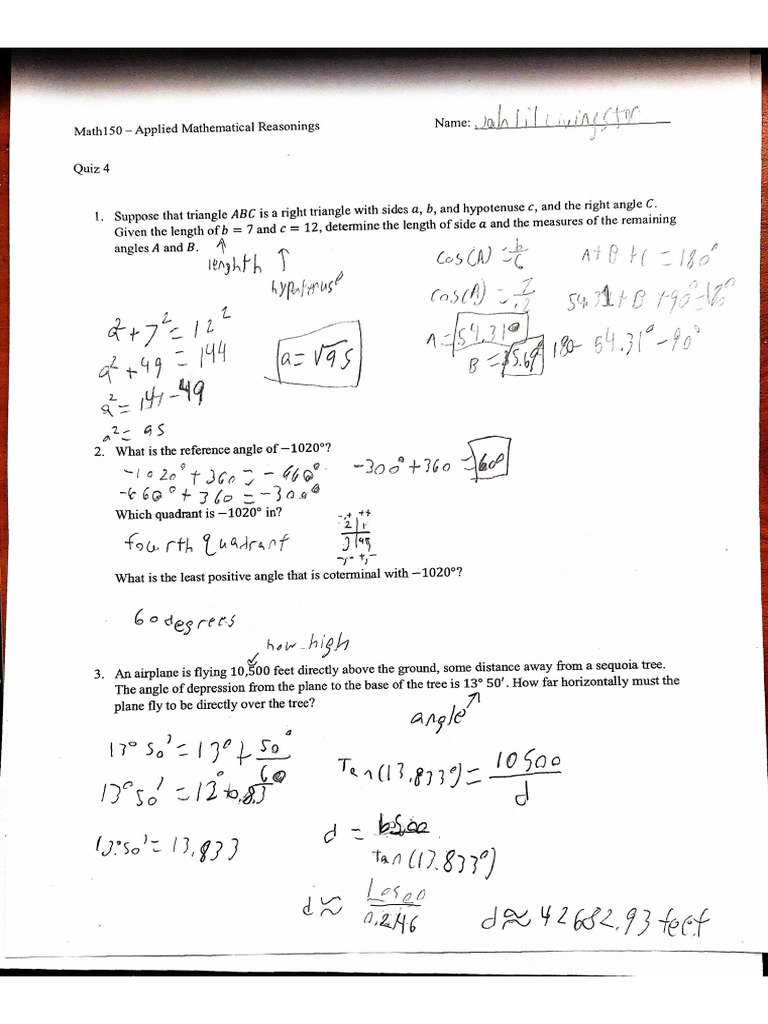 Math150 – Applied Mathematical Reasonings
Name: Jahlil Livingston
Quiz 4
1. Suppose that triangle ABC is a right triangle with sides a, b, and hypotenuse c, and the right angle C.
Given the length of b = 7 and c = 12, determine the length of side a and the measures of the remaining
angles A and B.
lenghth
hyputenuse
cos(A) = b/c
A + B + C = 180°
cos(A) = 7/12
54.31 + B + 90° = 180°
A = 54.31°
B = 35.69°
180 - 54.31° - 90°
a² + 7² = 12²
a² + 49 = 144
a² = 144 - 49
a² = 95
a = √95
2. What is the reference angle of −1020°?
-1020° + 360 = -660°
-660° + 360 = -300°
-300° + 360 = 60°
Which quadrant is −1020° in?
-,+ ++
2 1
3 4
-,- +,-
fourth quadrant
What is the least positive angle that is coterminal with −1020°?
60 degrees
how high
3. An airplane is flying 10,500 feet directly above the ground, some distance away from a sequoia tree.
The angle of depression from the plane to the base of the tree is 13° 50′. How far horizontally must the
plane fly to be directly over the tree?
angle
13° 50' = 13° + 50°/60
13° 50' = 13° + 0.83
13° 50' = 13.833
Tan(13.833°) = 10500/d
d = 10500/tan(13.833°)
d ≈ 10500/0.246
d ≈ 42682.93 feet